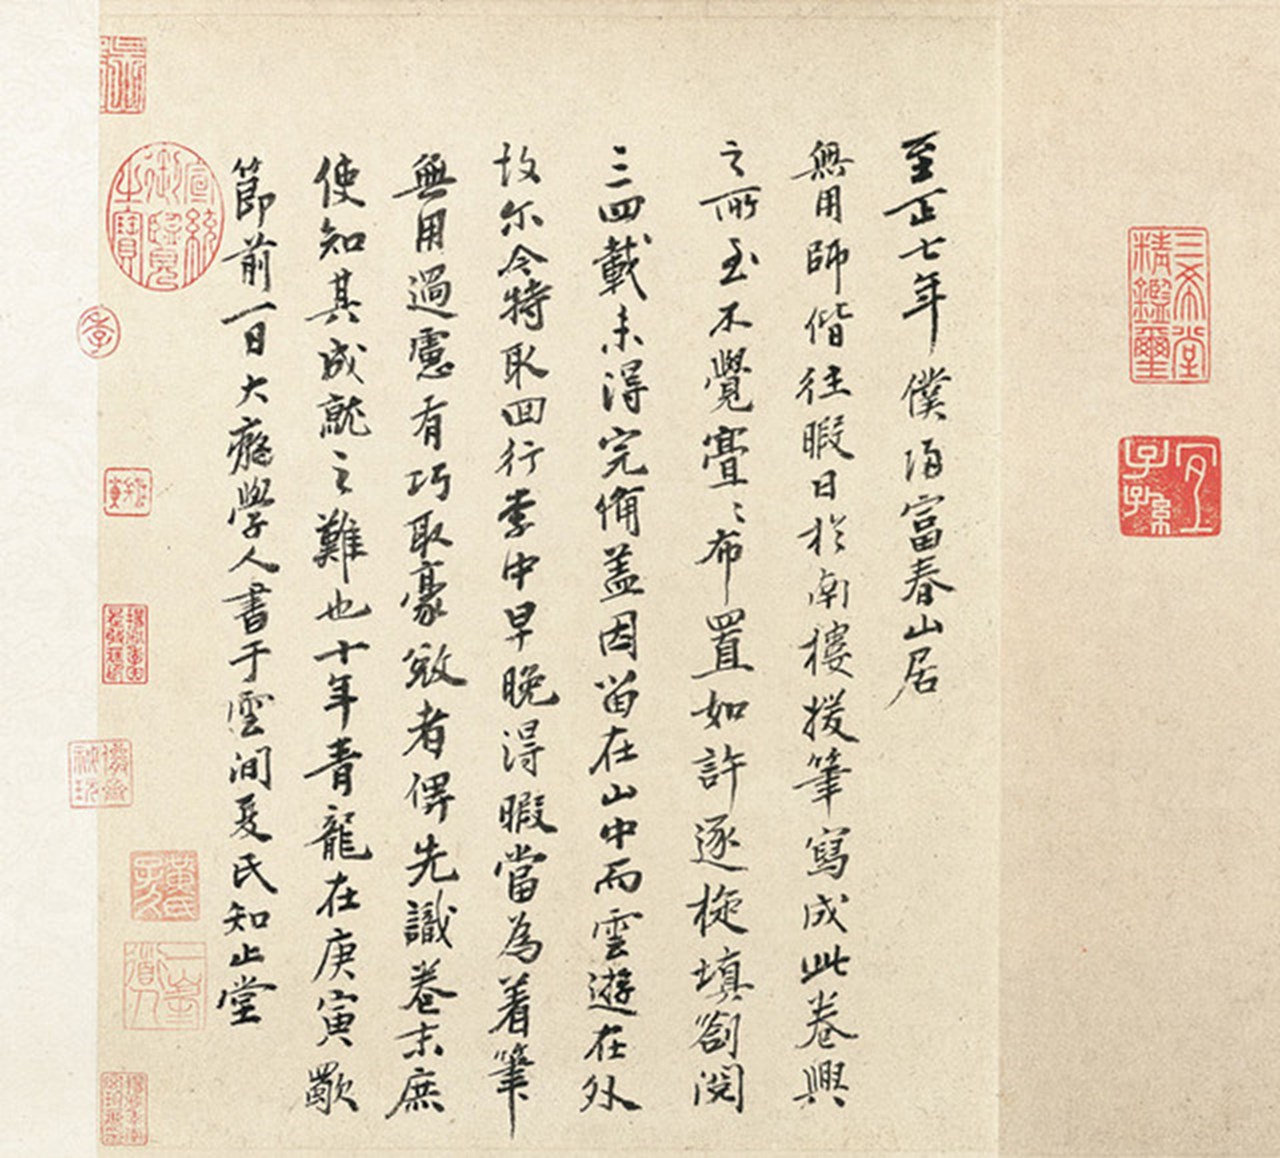 三希堂精鑑璽
宜子孫
至正七年僕歸富春山居
無用師偕往暇日於南樓援筆寫成此卷興
之所至不覺亹〻布置如許逐旋填劄閱
三四載未得完備盖因留在山中而雲遊在外
故尔今特取回行李中早晚得暇當為着筆
無用過慮有巧取豪敚者俾先識卷末庶
使知其成就之難也十年青龍在庚寅歜
節前一日大癡學人書于雲間夏氏知止堂
宣統御覽之寶
黃氏子久
一峯道人